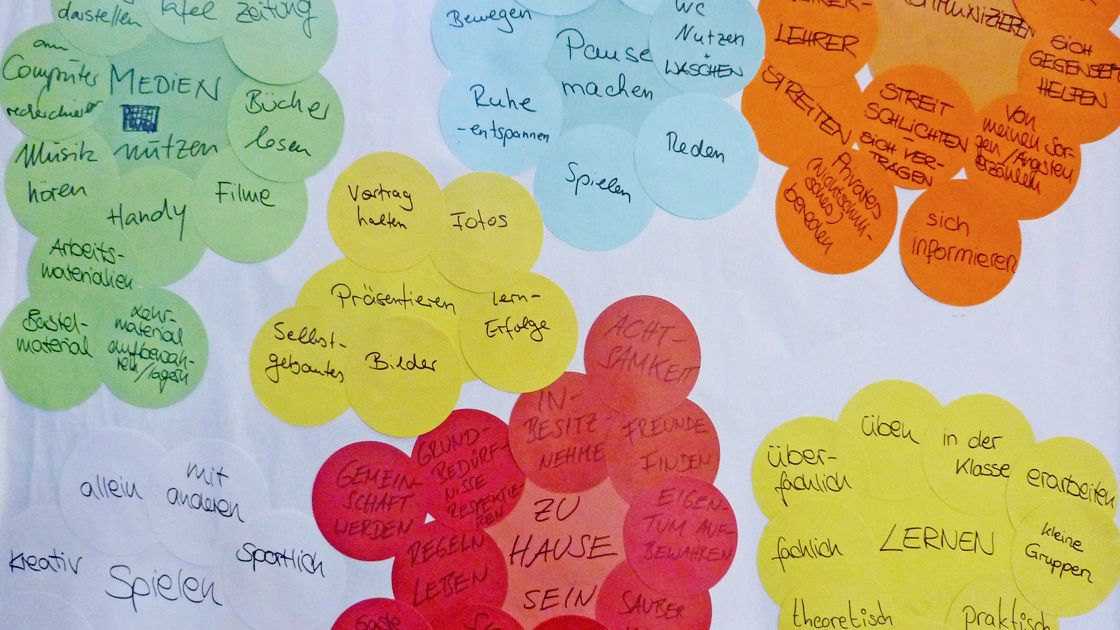 darstellen
Tafel
Zeitung
am
Computer
recherchieren
MEDIEN
nutzen
Bücher
lesen
Musik
hören
Handy
Filme
Arbeits-
materialien
Bastel-
material
Lehr-
material
aufbewah-
ren/lagern
Bewegen
Pause
machen
WC
Nutzen
+
WASCHEN
Ruhe
-entspannen
Spielen
Reden
LEHRER
STREITEN
STREIT
SCHLICHTEN
SICH VER-
TRAGEN
SICH
GEGENSEI
HELFEN
Von
meinen Sor-
gen/Ängsten
erzählen
Privates
(Nichtschuli-
sches)
bereden
sich
informieren
Vortrag
halten
Fotos
Präsentieren
Lern-
Erfolge
Selbst-
gebautes
Bilder
ACHT-
SAMKEIT
IN-
BESITZ-
NEHME
FREUNDE
FINDEN
GRUND-
BEDÜRF-
NISSE
RESPEKTIE-
REN
GEMEIN-
SCHAFT
WERDEN
EIGEN-
TUM AUF-
BEWAHREN
REGELN
LEBEN
ZU
HAUSE
SEIN
SAUBER
Gäste
allein
mit
anderen
kreativ
Spielen
Sportlich
über-
fachlich
üben
in der
Klasse
erarbeiten
fachlich
LERNEN
kleine
Gruppen
theoretisch
praktisch